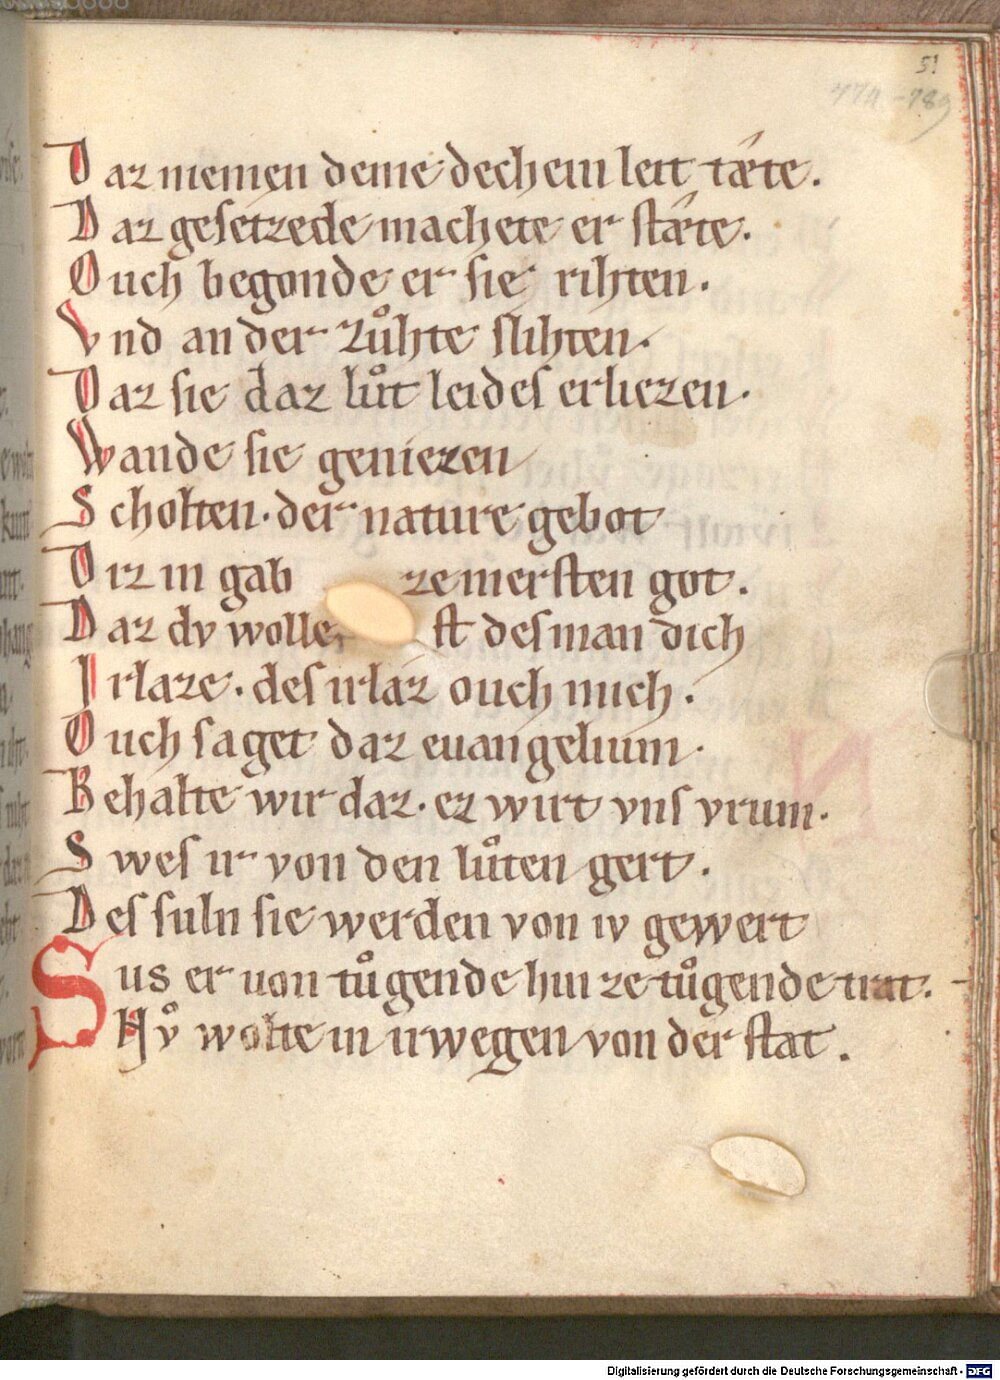 51
774-789
Daz niemen deme dechein leit tæte.
Daz gesetzede machete er stæte.
Ouch begonde er sie rihten.
Vnd an der zůhte slihten.
Daz sie daz lůt leides erliezen.
Wande sie geniezen
Scholten. der nature gebot
Diz in gab zem ersten got.
Daz dv wolle st des man dich
Irlaze. des irlaz ouch mich.
Ouch saget daz euangelium.
Behalte wir daz. ez wirt vns vrum.
Swes ir von den lůten gert.
Des suln sie werden von iv gewert
Sus er uon tůgende hin ze tůgende trat.
Nv̊ wolte in irwegen von der stat.
Digitalisierung gefördert durch die Deutsche Forschungsgemeinschaft - DFG